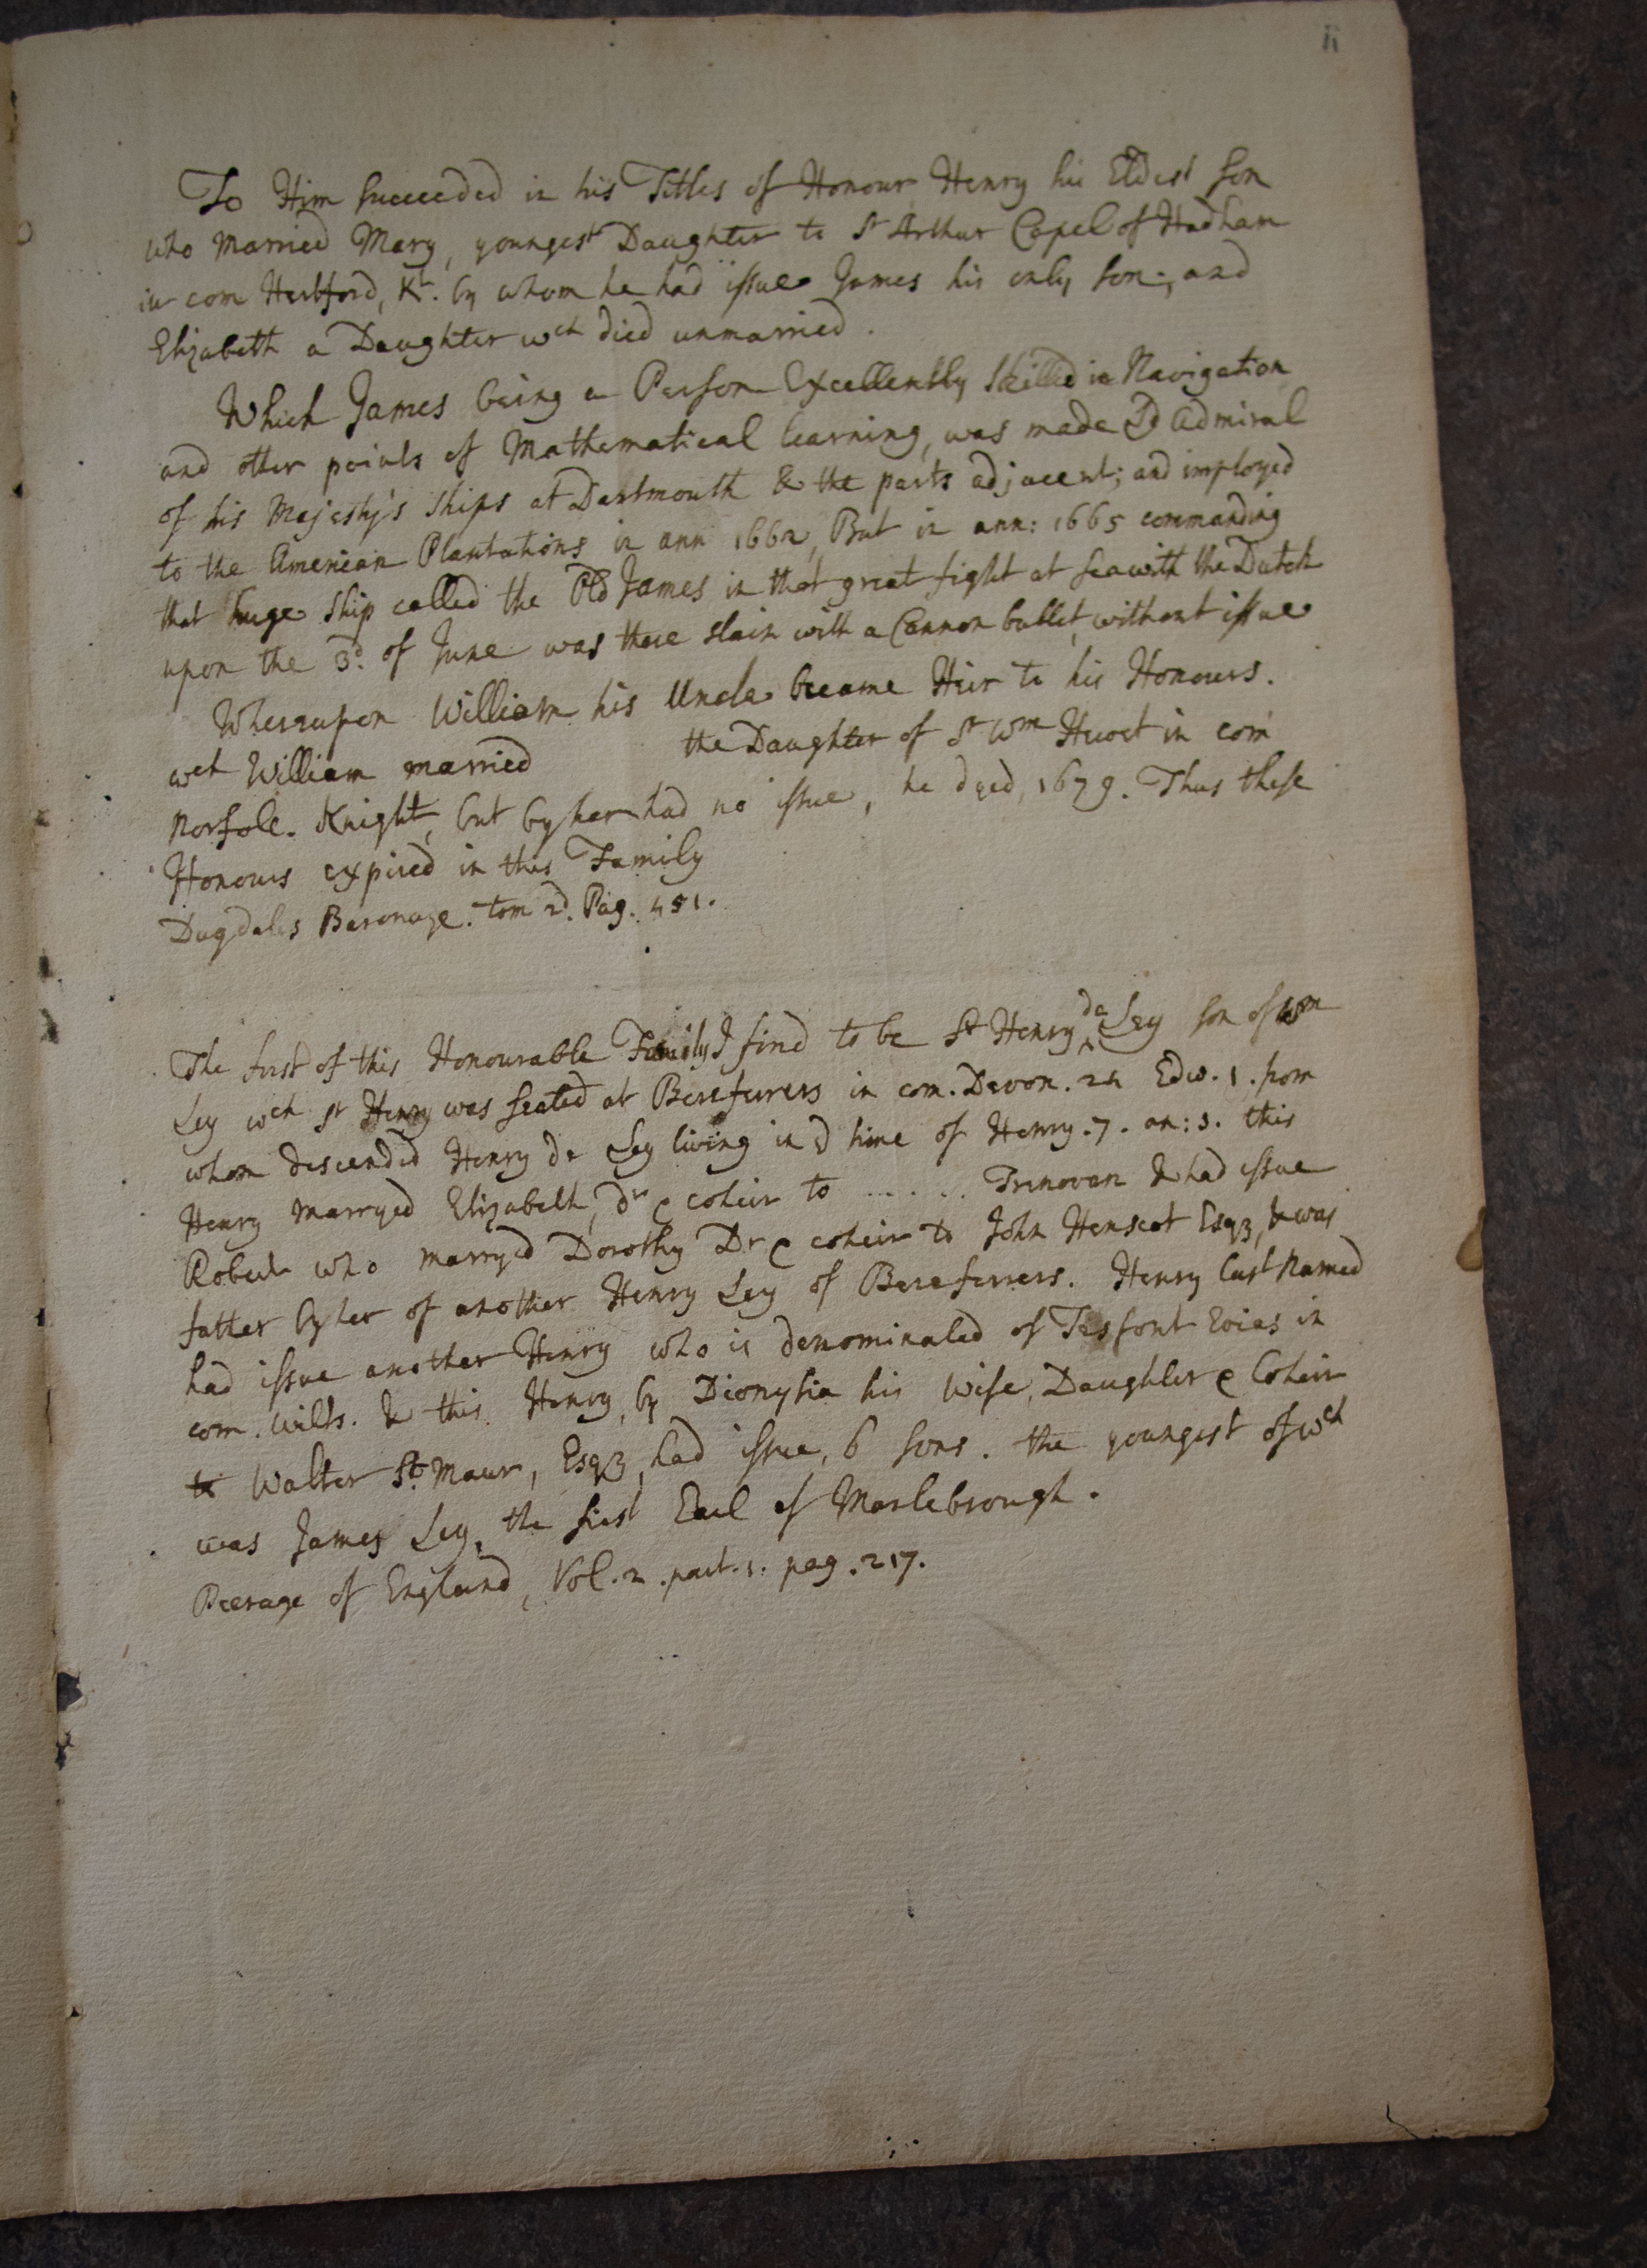 11
To Him succeeded in his Titles of Honour Henry his Eldest son
who married Mary, youngest Daughter to Sr Arthur Capel of Hadham
in com Hertford, Kt. by whom he had issue James his only son; and
Elizabeth a Daughter wch died unmarried.
Which James being a Person Excellently skilled in Navigation
and other points of Mathematical learning, was made Ld Admiral
of his Majesty's ships at Dartmouth & the parts adjacent; and imployed
to the American Plantations in ann 1662, But in ann: 1665 commanding
that huge ship called the Old James in that great fight at sea with the Dutch
upon the 3d. of June was there slain with a Cannon bullet, without issue
Whereupon William his Uncle became Heir to his Honours.
wch William married the Daughter of Sr Wm Hewet in com
Norfolc. Knight, but by her had no issue, he dyed, 1679. Thus these
Honours expired in this Family
Dugdales Baronage. tom 2d. Pag. 451.
The first of this Honourable Family I find to be Sr Henry de Ley son of Wm
Ley wch Sr Henry was seated at Bereferrers in com. Devon. 24 Edw. 1. from
whom descended Henry de Ley living in d time of Henry. 7. an: 3. this
Henry marryed Elizabeth, dr & coheir to ...... Trenovan & had issue
Robert who marryed Dorothy Dr & coheir to John Henscot Esqz, & was
father by her of another Henry Ley of Bereferrers. Henry last Named
had issue another Henry who is denominated of Tesfont Evias in
com. Wilts. & this Henry, by Dionysia his Wife, Daughter & Coheir
to Walter St. Maur, Esqz, had issue, 6 sons. the youngest of wch
was James Ley, the first Earl of Marlebrough.
Peerage of England, Vol. 2. part. 1. pag. 217.